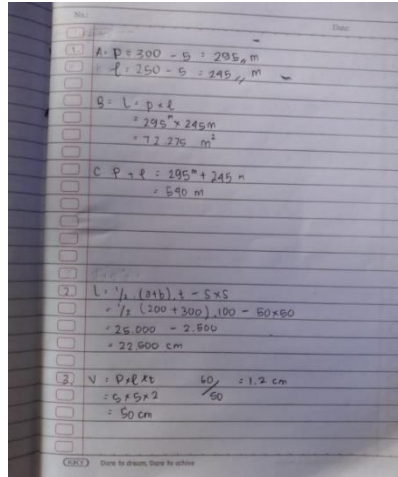 No.:
Date:
1. A. P = 300 - 5 = 295,, m
l = 250 - 5 = 245,, m
B = L = p x l
= 295 m x 245 m
= 72.275 m²
C P + l = 295 m + 245 m
= 540 m
2. L = 1/2 . (a+b) . t - s x s
= 1/2 (200 + 300) . 100 - 50 x 50
= 25.000 - 2.500
= 22.500 cm
3. V = P x l x t 60/50 = 1,2 cm
= 5 x 5 x 2
= 50 cm
KIKY Dare to dream, Dare to achive